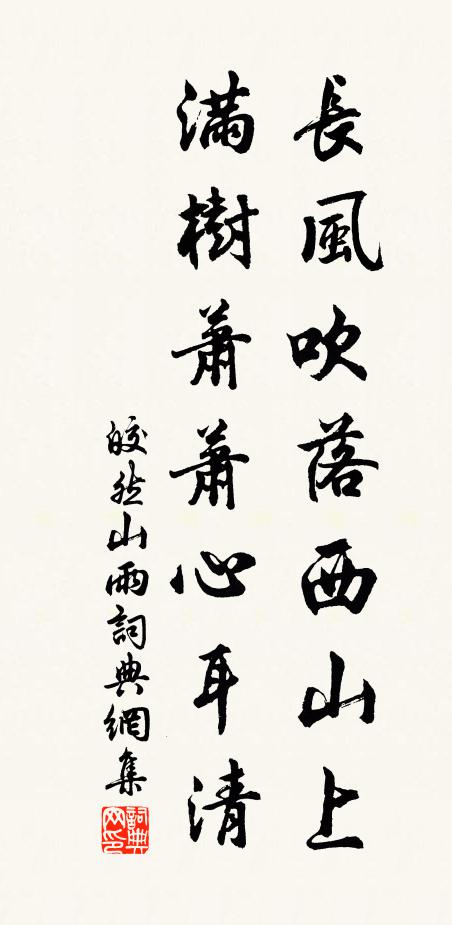 長風吹落西山上
滿樹蕭蕭心耳清
皎然山雨詞典網集
詞典网印